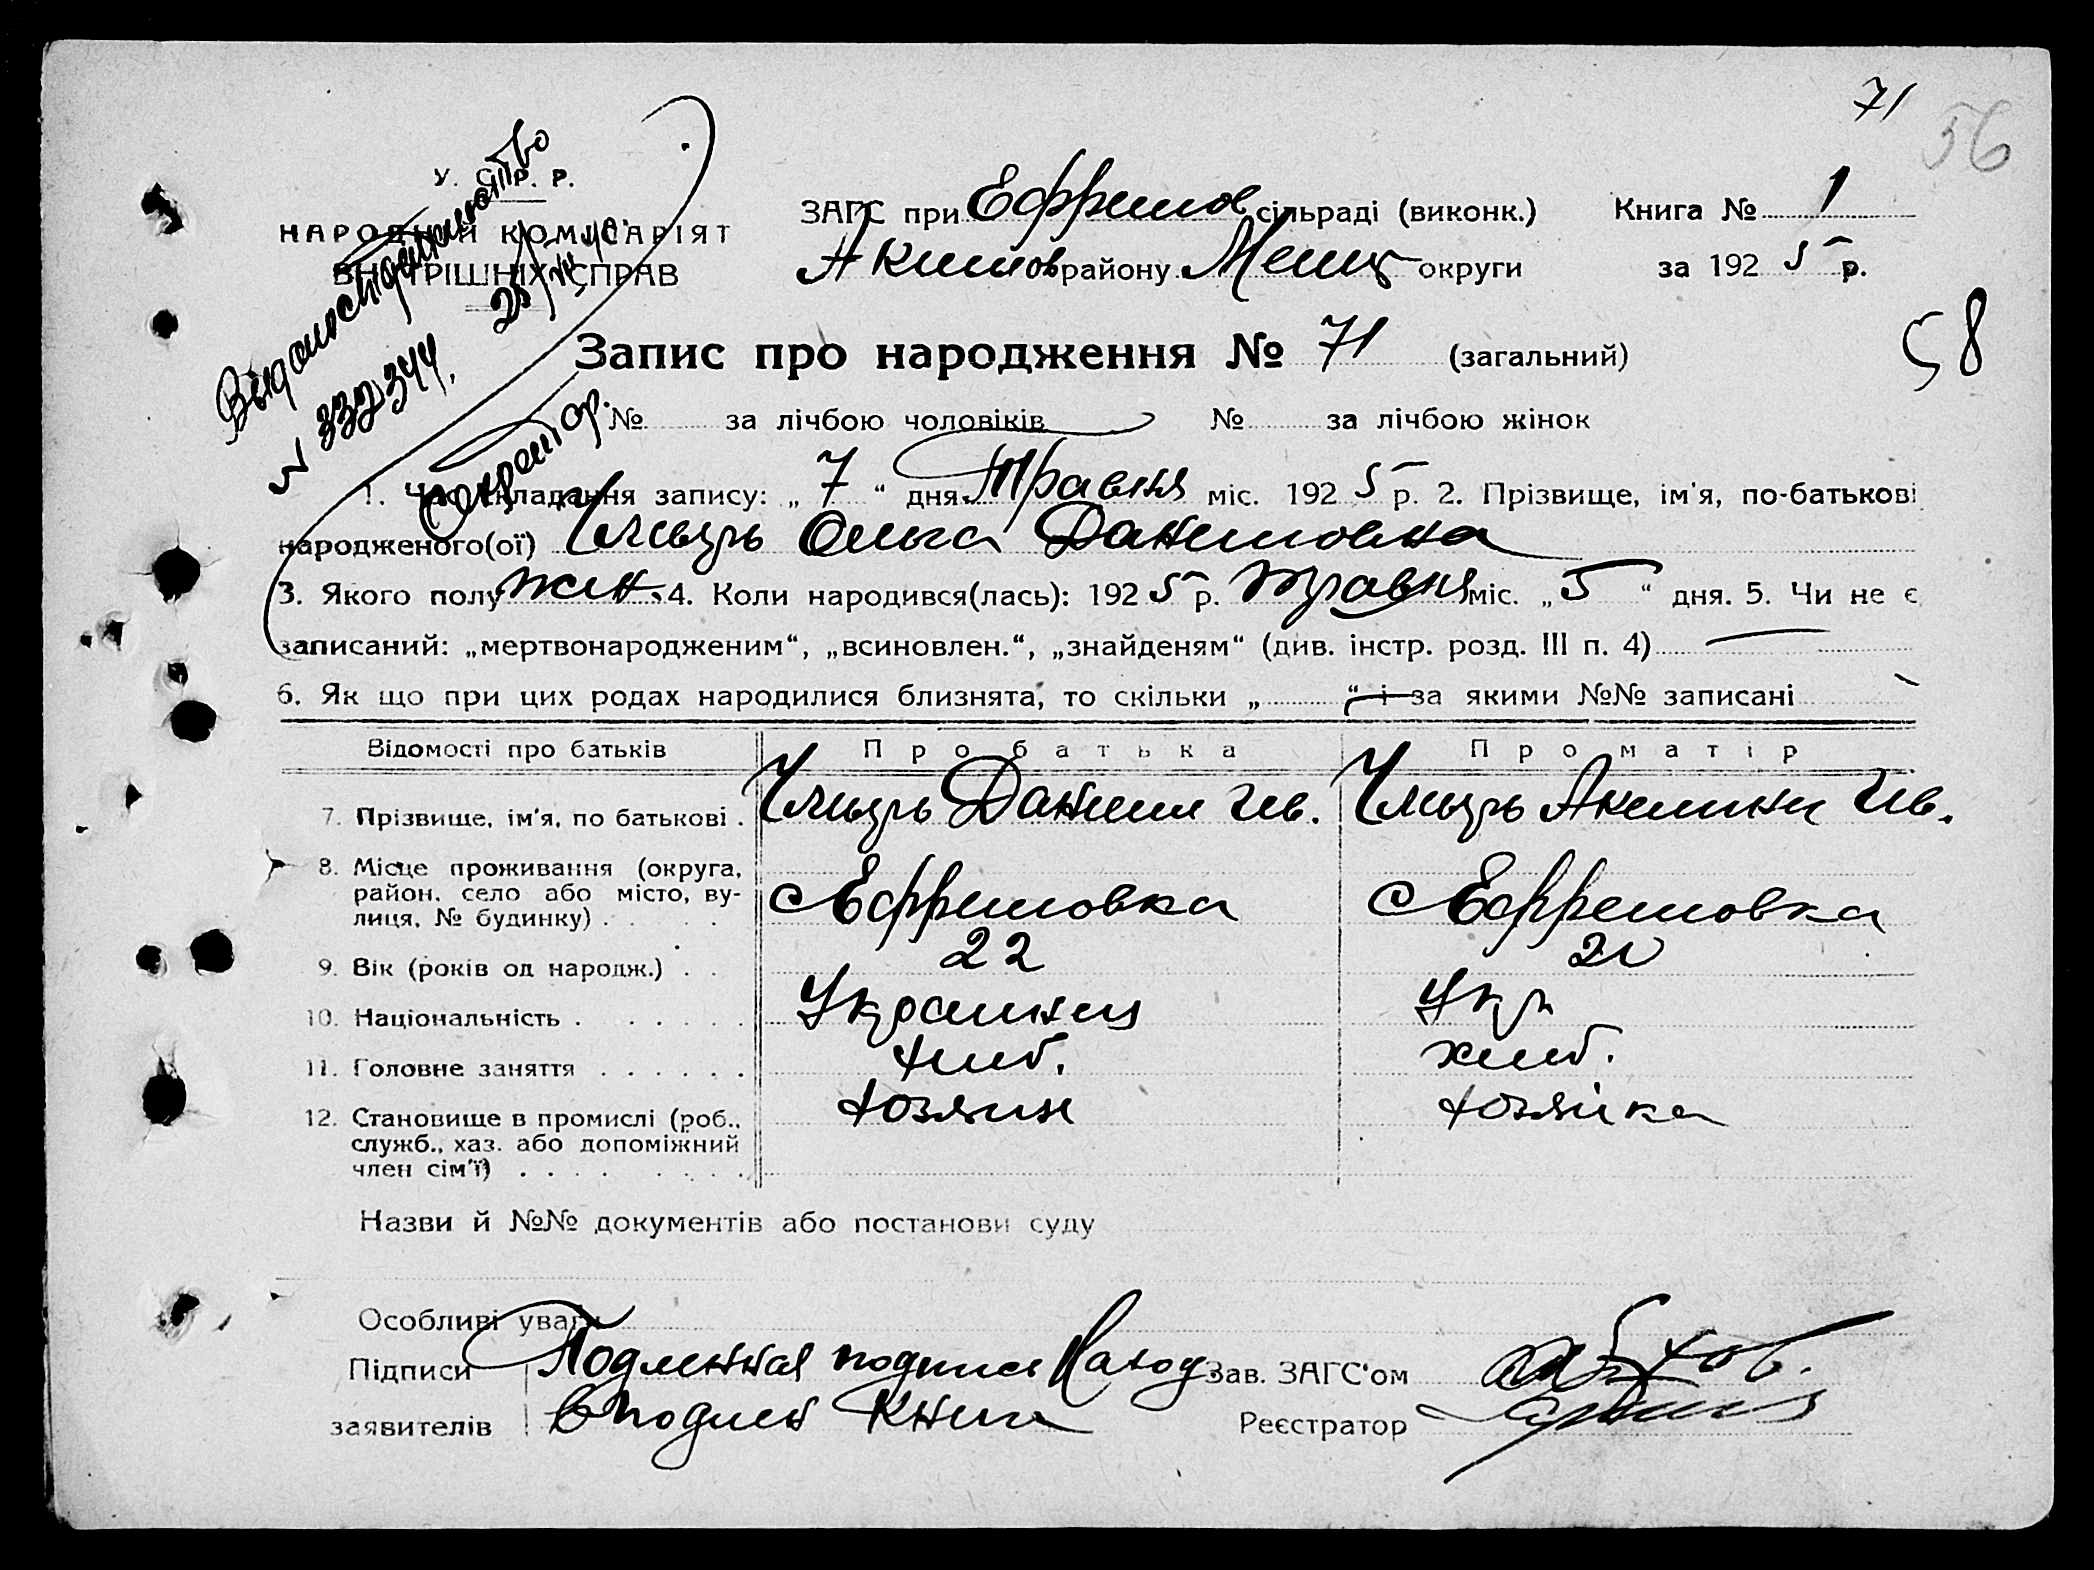 71
56
У. С. Р. Р.
НАРОДНІЙ КОМІСАРІЯТ
ВНУТРІШНІХ СПРАВ
Видано свідоцтво
N 332344. 25/IV
Секретар.
ЗАГС при Ефремов сільраді (виконк.) Книга № 1
Акимов району Меліт округи за 192 5 р.
58
Запис про народження № 71 (загальний)
№ за лічбою чоловіків № за лічбою жінок
1. Час складання запису: „ 7 “ дня Травня міс. 192 5 р. 2. Прізвище, ім'я, по-батькові
народженого(ої) Ольга Даниловна
3. Якого полу жін. 4. Коли народився(лась): 192 5 р. травня міс. „ 5 “ дня. 5. Чи не є
записаний: „мертвонародженим“, „всиновлен.“, „знайденям“ (див. інстр. розд. III п. 4) —
6. Як що при цих родах народилися близнята, то скільки „ “ і за якими №№ записані
Відомості про батьків Про батька Про матір
7. Прізвище, ім'я, по батькові . Даниил Ив. Акилини Ив.
8. Місце проживання (округа, район, село або місто, вулиця, № будинку) . с Ефремовка с Ефремовка
9. Вік (років од народж.) . . 22 20
10. Національність . Украинец Укр
11. Головне заняття . хліб. хліб.
12. Становище в промислі (роб., служб., хаз. або допоміжний член сім'ї) хозяин хозяйка
Назви й №№ документів або постанови суду
Особливі уваги
Підписи Подленная подпись Наход Зав. ЗАГС'ом
заявителів в подлен Книге Реєстратор